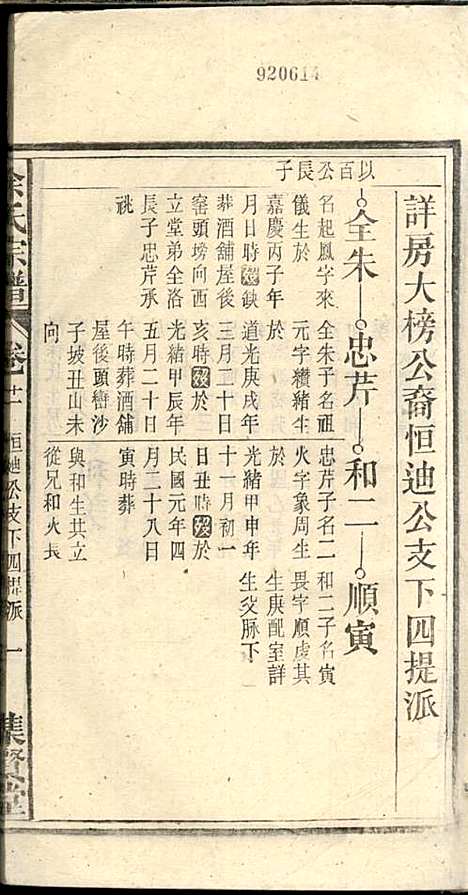 920614
詳房大榜公裔恒迪公支下四提派
以百公長子
全朱 忠芹 和二 順寅
名起鳳字來
儀生於
嘉慶丙子年
月日時歿缺
葬酒舖屋後
窑頭塝向西
立堂弟全洛
長子忠芹承
祧
全朱子名祖
元字纘緒生
於
道光庚戌年
三月三十日
亥時歿於
光緒甲辰年
五月二十日
午時葬酒舖
屋後頭巒沙
子坡丑山未
向
忠芹子名二
火字象周生
於
光緒甲申年
十一月初一
日丑時歿於
民國元年四
月二十八日
寅時葬
與和生共立
從兄和火長
和二子名寅
畏字順虔其
生庚配室詳
生父脉下
余氏宗譜 卷十一 恒迪公支下四提派 一 集賢堂